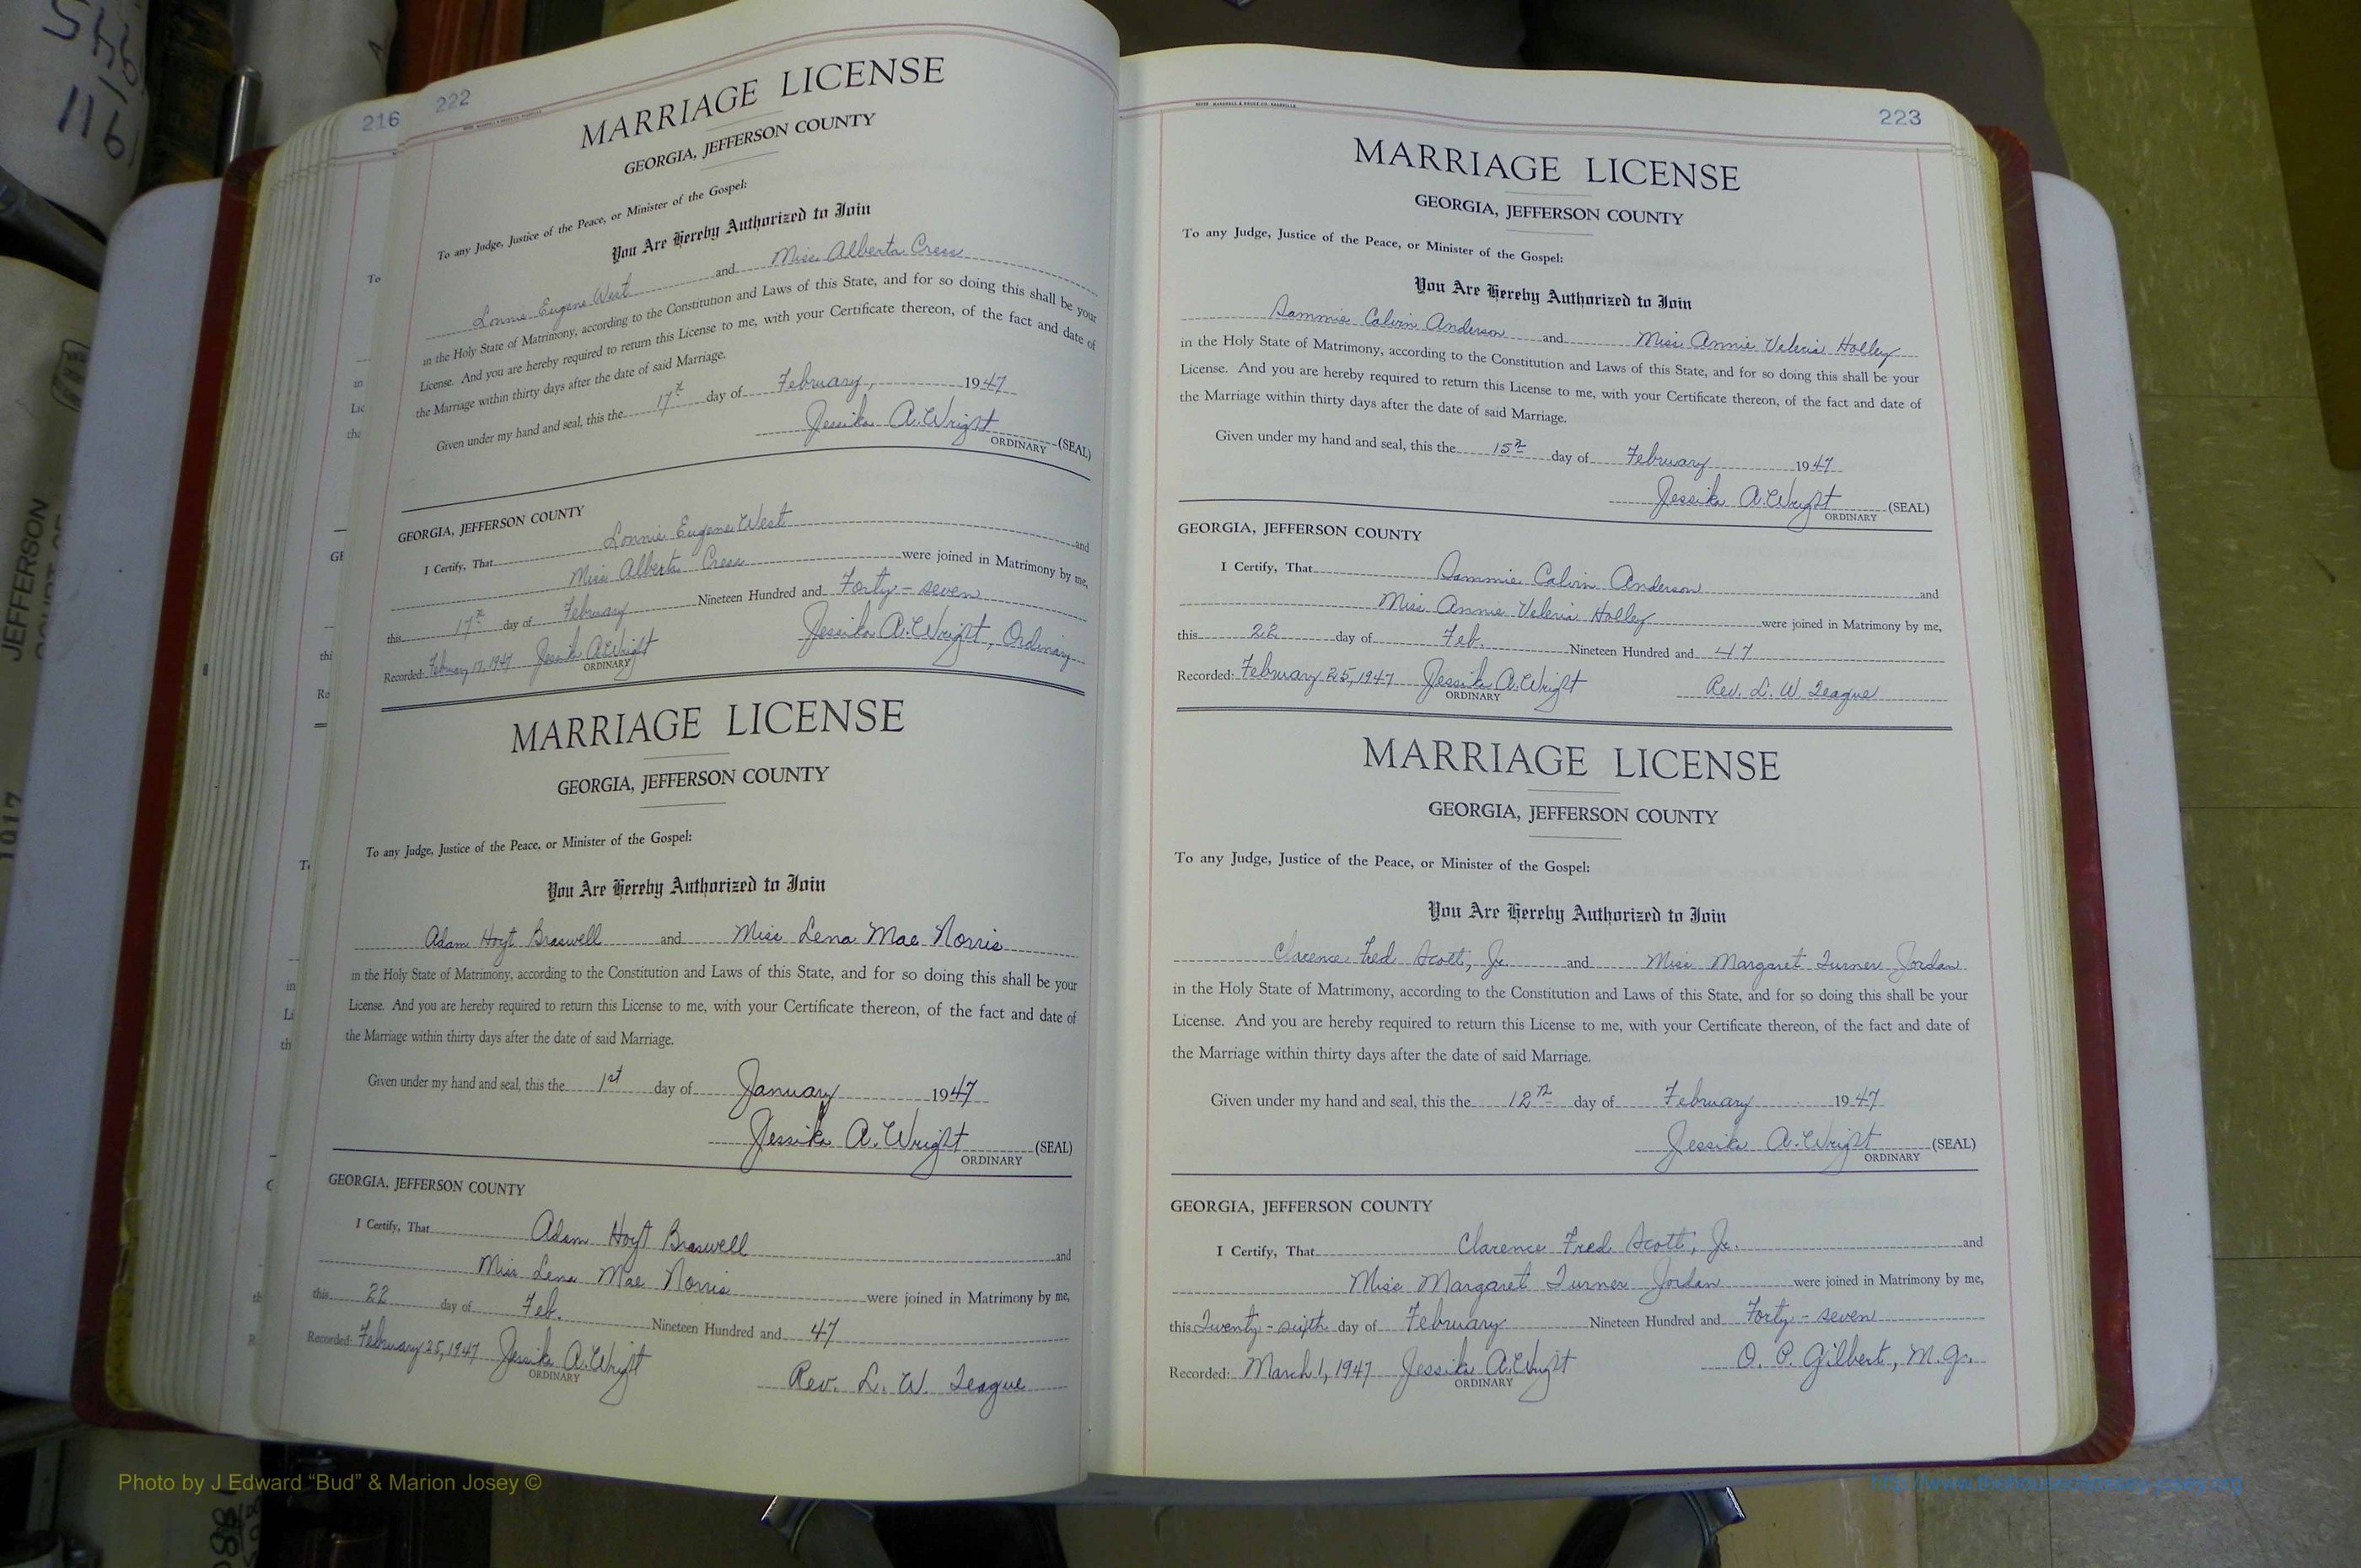 216
222
MARRIAGE LICENSE
GEORGIA, JEFFERSON COUNTY
To any Judge, Justice of the Peace, or Minister of the Gospel:
You Are Hereby Authorized to Join
Lonnie Eugene West and Miss Alberta Cress
in the Holy State of Matrimony, according to the Constitution and Laws of this State, and for so doing this shall be your
License. And you are hereby required to return this License to me, with your Certificate thereon, of the fact and date of
the Marriage within thirty days after the date of said Marriage.
Given under my hand and seal, this the 17th day of February, 1947
Jessika A. Wright (SEAL)
ORDINARY
GEORGIA, JEFFERSON COUNTY
I Certify, That Lonnie Eugene West and
Miss Alberta Cress were joined in Matrimony by me,
this 17th day of February Nineteen Hundred and Forty-seven
Recorded: February 17, 1947 Jessika A. Wright Jessika A. Wright, Ordinary
ORDINARY
MARRIAGE LICENSE
GEORGIA, JEFFERSON COUNTY
To any Judge, Justice of the Peace, or Minister of the Gospel:
You Are Hereby Authorized to Join
Adam Hoyt Braswell and Miss Lena Mae Norris
in the Holy State of Matrimony, according to the Constitution and Laws of this State, and for so doing this shall be your
License. And you are hereby required to return this License to me, with your Certificate thereon, of the fact and date of
the Marriage within thirty days after the date of said Marriage.
Given under my hand and seal, this the 1st day of January 1947
Jessika A. Wright (SEAL)
ORDINARY
GEORGIA, JEFFERSON COUNTY
I Certify, That Adam Hoyt Braswell and
Miss Lena Mae Norris were joined in Matrimony by me,
this 22 day of Feb. Nineteen Hundred and 47
Recorded: February 25, 1947 Jessika A. Wright Rev. L. W. Teague
ORDINARY
223
MARRIAGE LICENSE
GEORGIA, JEFFERSON COUNTY
To any Judge, Justice of the Peace, or Minister of the Gospel:
You Are Hereby Authorized to Join
Sammie Calvin Anderson and Miss Annie Valeria Holley
in the Holy State of Matrimony, according to the Constitution and Laws of this State, and for so doing this shall be your
License. And you are hereby required to return this License to me, with your Certificate thereon, of the fact and date of
the Marriage within thirty days after the date of said Marriage.
Given under my hand and seal, this the 15th day of February 1947
Jessika A. Wright (SEAL)
ORDINARY
GEORGIA, JEFFERSON COUNTY
I Certify, That Sammie Calvin Anderson and
Miss Annie Valeria Holley were joined in Matrimony by me,
this 22 day of Feb. Nineteen Hundred and 47
Recorded: February 25, 1947 Jessika A. Wright Rev. L. W. Teague
ORDINARY
MARRIAGE LICENSE
GEORGIA, JEFFERSON COUNTY
To any Judge, Justice of the Peace, or Minister of the Gospel:
You Are Hereby Authorized to Join
Clarence Fred Scott, Jr. and Miss Margaret Turner Jordan
in the Holy State of Matrimony, according to the Constitution and Laws of this State, and for so doing this shall be your
License. And you are hereby required to return this License to me, with your Certificate thereon, of the fact and date of
the Marriage within thirty days after the date of said Marriage.
Given under my hand and seal, this the 12th day of February 1947
Jessika A. Wright (SEAL)
ORDINARY
GEORGIA, JEFFERSON COUNTY
I Certify, That Clarence Fred Scott, Jr. and
Miss Margaret Turner Jordan were joined in Matrimony by me,
this Twenty-sixth day of February Nineteen Hundred and Forty-seven
Recorded: March 1, 1947 Jessika A. Wright O. P. Gilbert, M.G.
ORDINARY
JEFFERSON
1917
116
Photo by J Edward “Bud” & Marion Josey ©